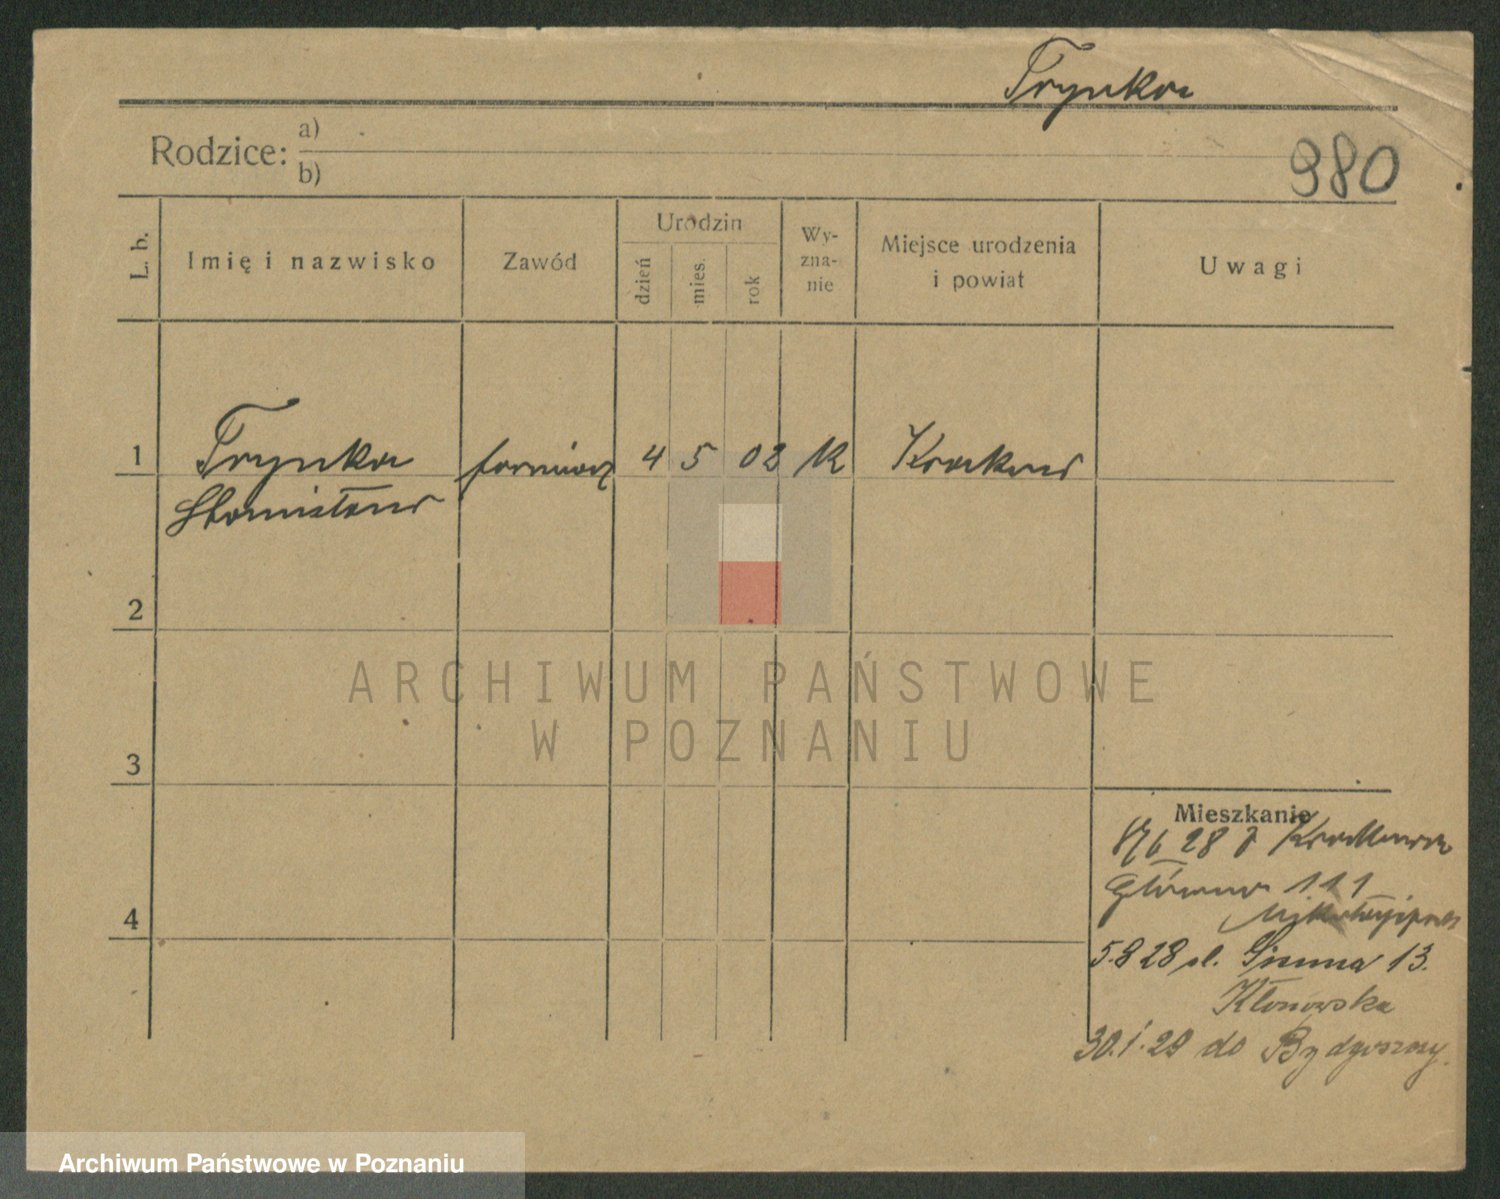 Trynka
Rodzice: a)
b)
980
L. b.
Imię i nazwisko
Zawód
Urodzin
dzień
mies.
rok
Wy-
zna-
nie
Miejsce urodzenia
i powiat
Uwagi
1
Trynka formierz 4 5 02 K Kraków
Stanisław
2
ARCHIWUM PAŃSTWOWE
W POZNANIU
3
Mieszkanie
28 z Krakowa
Główna 111
4
5.8 28 ul. 13.
Klonowska
30.1.29 do Bydgoszczy.
Archiwum Państwowe w Poznaniu